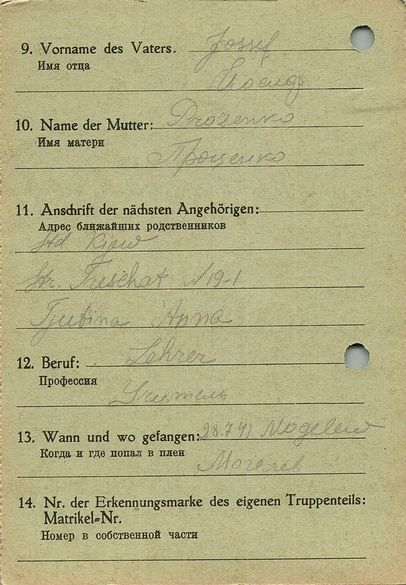 9. Vorname des Vaters. Jossif
Имя отца
Иосиф
10. Name der Mutter: Prozenko
Имя матери
Проценко
11. Anschrift der nächsten Angehörigen:
Адрес ближайших родственников
Std Kijew
Str. N 19-1
Anna
12. Beruf: Lehrer
Профессия
Учитель
13. Wann und wo gefangen: 28.7.41 Mogelew
Когда и где попал в плен
Могелев
14. Nr. der Erkennungsmarke des eigenen Truppenteils:
Matrikel=Nr.
Номер в собственной части